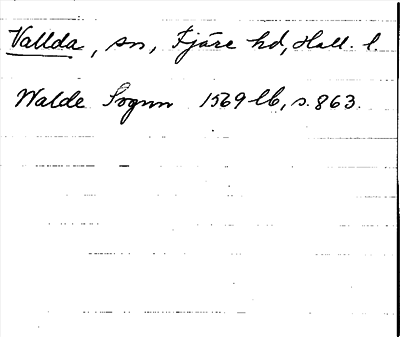 Vallda, sn, Fjäre hd, Hall. l.
Walde Sognn 1569 lb, s. 863.